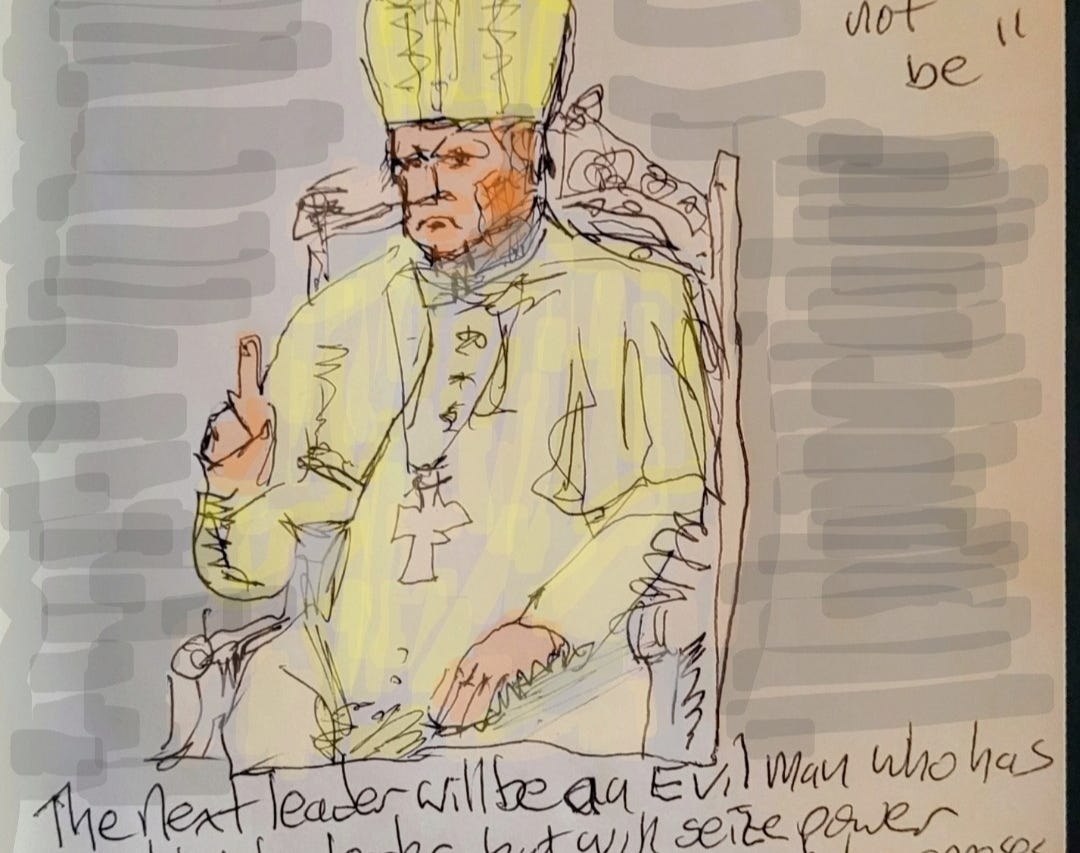 not
be "
The Next leader will be an Evil man who has
but will seize power